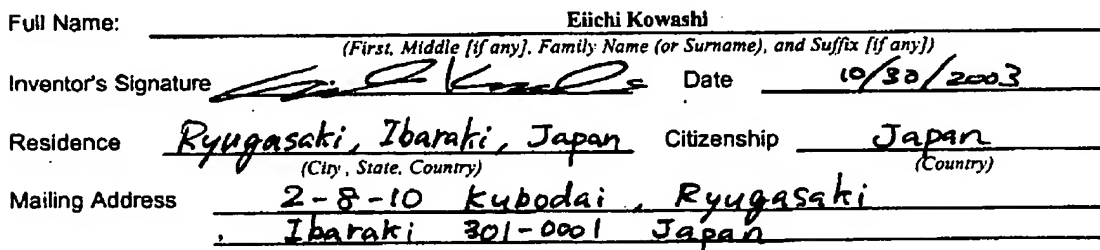 Full Name: Eiichi Kowashi
(First, Middle [if any], Family Name (or Surname), and Suffix [if any])
Inventor's Signature Date 10/30/2003
Residence Ryugasaki, Ibaraki, Japan Citizenship Japan
(City, State, Country) (Country)
Mailing Address 2-8-10 Kubodai, Ryugasaki
Ibaraki 301-0001 Japan